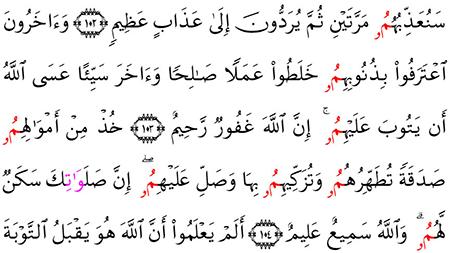 سَنُعَذِّبُهُمُۥ مَرَّتَيْنِ ثُمَّ يُرَدُّونَ إِلَىٰ عَذَابٍ عَظِيمٖ ١٠٢ وَءَاخَرُونَ
ٱعْتَرَفُواْ بِذُنُوبِهِمُۥ خَلَطُواْ عَمَلٗا صَٰلِحٗا وَءَاخَرَ سَيِّئًا عَسَى ٱللَّهُ
أَن يَتُوبَ عَلَيْهِمُۥۚ إِنَّ ٱللَّهَ غَفُورٞ رَّحِيمٌ ١٠٣ خُذْ مِنْ أَمْوَٰلِهِمُۥ
صَدَقَةٗ تُطَهِّرُهُمُۥ وَتُزَكِّيهِمُۥ بِهَا وَصَلِّ عَلَيْهِمُۥۖ إِنَّ صَلَوَٰتِكَ سَكَنٞ
لَّهُمُۥۗ وَٱللَّهُ سَمِيعٌ عَلِيمٌ ١٠٤ أَلَمْ يَعْلَمُواْ أَنَّ ٱللَّهَ هُوَ يَقْبَلُ ٱلتَّوْبَةَ